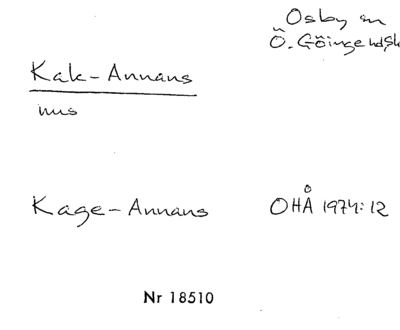 Osby sn
Ö. Göinge hd, Sk
Kak-Annans
hus
Kage-Annans OHÅ 1974:12
Nr 18510